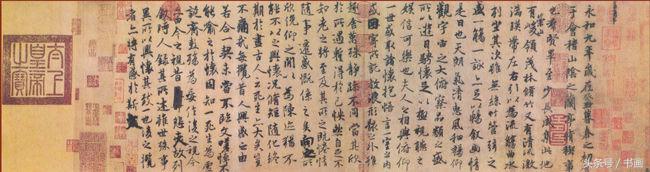 永和九年歲在癸丑暮春之初會
于會稽山陰之蘭亭脩稧事
也群賢畢至少長咸集此地
有崇山峻領茂林脩竹又有清流激
湍暎帶左右引以為流觴曲水
列坐其次雖無絲竹管弦之
盛一觴一詠亦足以暢敘幽情
是日也天朗氣清惠風和暢仰
觀宇宙之大俯察品類之盛
所以遊目騁懷足以極視聽之
娛信可樂也夫人之相與俯仰
一世或取諸懷抱悟言一室之內
或因寄所託放浪形骸之外雖
趣舍萬殊靜躁不同當其欣
於所遇暫得於己怏然自足不
知老之將至及其所之既惓情
隨事遷感慨係之矣向之所
欣俛仰之閒以為陳迹猶不
能不以之興懷況脩短隨化終
期於盡古人云死生亦大矣豈
不痛哉每攬昔人興感之由
若合一契未嘗不臨文嗟悼不
能喻之於懷固知一死生為虛
誕齊彭殤為妄作後之視今
亦由今之視昔悲夫故列
敘時人錄其所述雖世殊事
異所以興懷其致一也後之攬
者亦將有感於斯文
太上皇帝之寶
头条号／书画